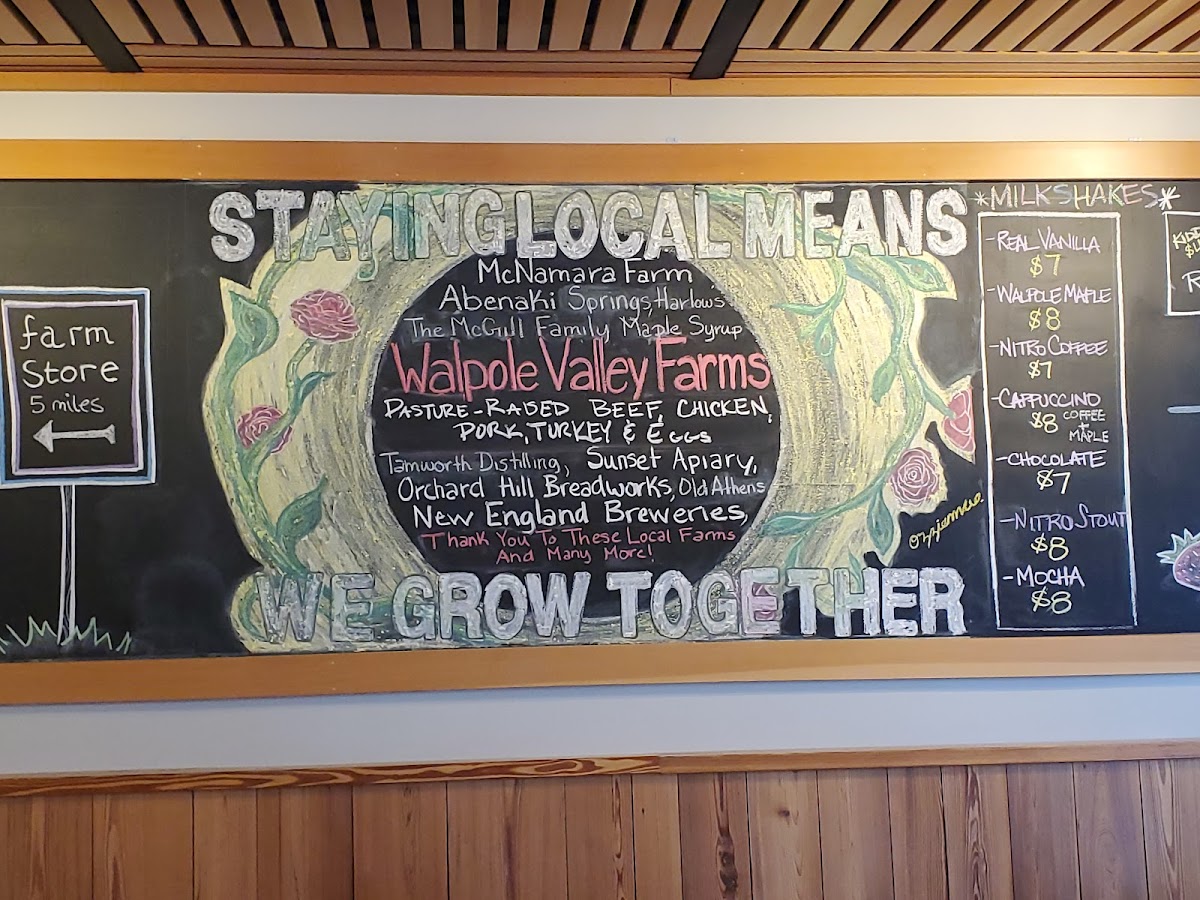 farm
Store
5 miles
STAYING LOCAL MEANS
McNamara Farm
Abenaki Springs, Harlows
The McGill Family Maple Syrup
Walpole Valley Farms
PASTURE-RAISED BEEF, CHICKEN,
PORK, TURKEY & EGGS
Tamworth Distilling, Sunset Apiary,
Orchard Hill Breadworks, Old Athens
New England Breweries,
Thank You To These Local Farms
And Many More!
WE GROW TOGETHER
*MILKSHAKES*
-REAL VANILLA
$7
-WALPOLE MAPLE
$8
-NITRO COFFEE
$7
-CAPPUCCINO
$8 COFFEE
+
MAPLE
-CHOCOLATE
$7
-NITRO STOUT
$8
-MOCHA
$8